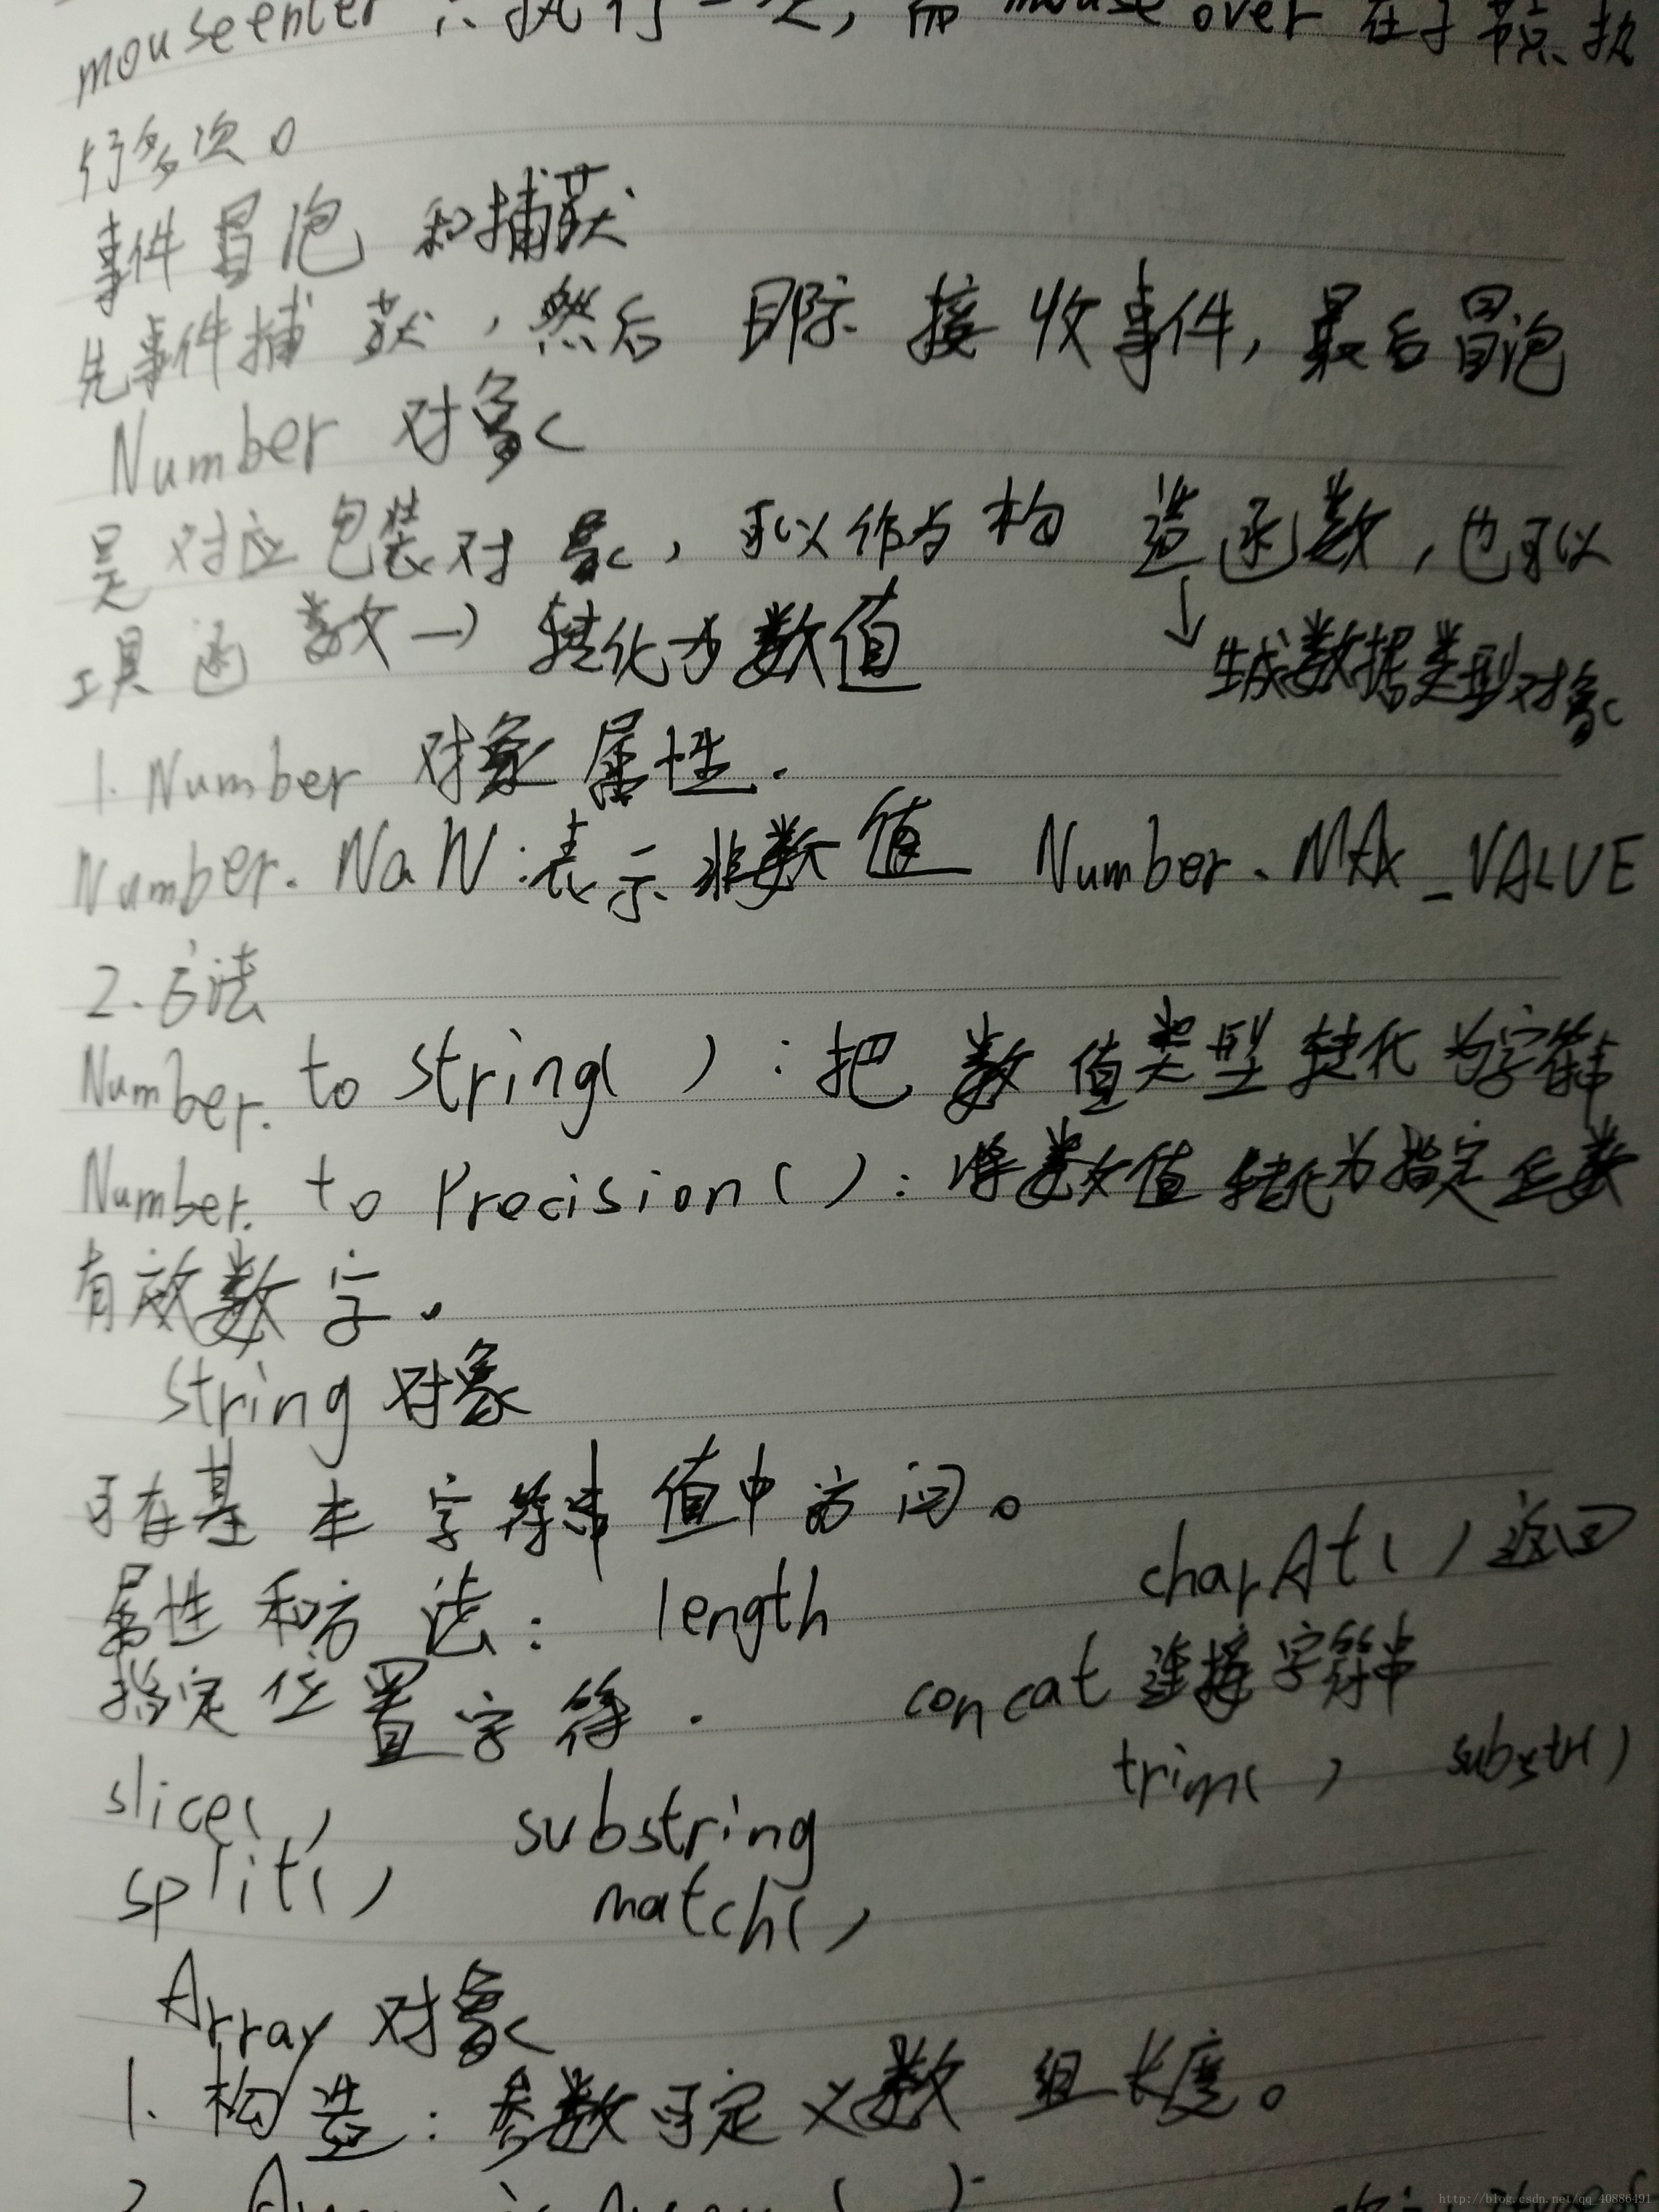 mouseenter 只执行一次，而 mouse over 在子节点执
行多次。
事件冒泡 和捕获
先事件捕获，然后 目标 接收事件, 最后冒泡
Number 对象
是对应包装对象，可以作为构造函数，也可以
↓
工具函数→ 转化为数值
生成数据类型对象
1. Number 对象属性.
Number. NaN:表示非数值 Number.MAX_VALUE
2.方法
Number. to string( ):把数值类型转化为字符串
Number. to Precision( ):将数值转化为指定位数
有效数字.
string 对象
可在基本字符串值中访问。
属性和方法: length charAt( )返回
指定位置字符. concat 连接字符串
slice( ) substring trim( ) substr()
split( ) match( )
Array 对象
1. 构造:参数可定义数组长度。
http://blog.csdn.net/qq_40886491